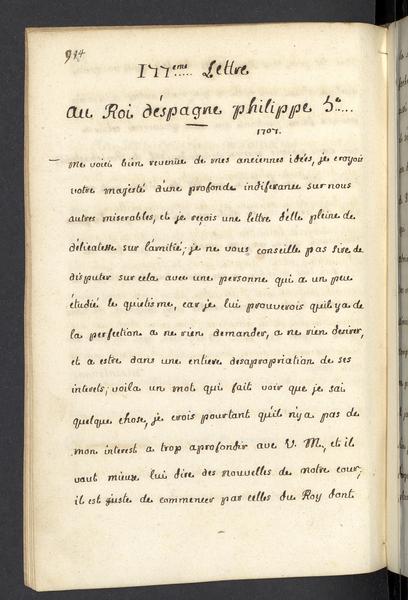 944
177eme..... Lettre
au Roi d'éspagne philippe 5e.....
1707.
me voici bien revenüe de mes anciennes idées, je croyois
votre majesté d'une profonde indiferance sur nous
autres miserables, et je reçois une lettre d'elle pleine de
délicatesse sur l'amitié; je ne vous conseille pas sire de
disputer sur cela avec une personne qui a un peu
étudié le quietisme, car je lui prouverois qu'il y a de
la perfection a ne rien demander, a ne rien desirer,
et a estre dans une entiere desapropriation de ses
interets; voila un mot qui fait voir que je sai
quelque chose, je crois pourtant qu'il n'y a pas de
mon interest a trop aprofondir avec V. M., et il
vaut mieux lui dire des nouvelles de notre cour;
il est juste de commencer par celles du Roy dont